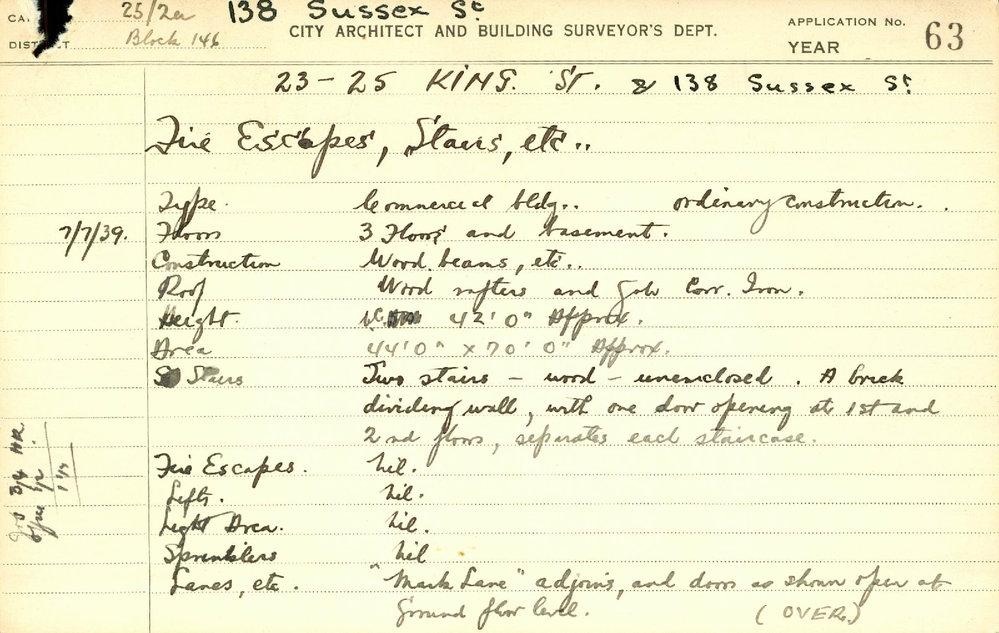 25/2a 138 Sussex St
Block 146
CITY ARCHITECT AND BUILDING SURVEYOR'S DEPT.
APPLICATION No.
YEAR
63
DISTRICT
23-25 KING. ST. & 138 Sussex St
Fire Escapes, Stairs, etc..
Type. Commercial bldg.. ordinary construction.
7/7/39. Floors 3 Floors and basement.
Construction Wood beams, etc..
Roof Wood rafters and Galv Corr. Iron.
Height. 42'0" Approx.
Area 44'0" x 70'0" Approx.
Stairs Two stairs - wood - unenclosed. A brick
dividing wall, with one door opening at 1st and
2nd floors, separates each staircase.
Fire Escapes. nil.
Lifts. nil.
Light Area. nil.
Sprinklers nil
Lanes, etc. "Mark Lane" adjoins, and doors as shown open at
Ground floor level. (OVER)